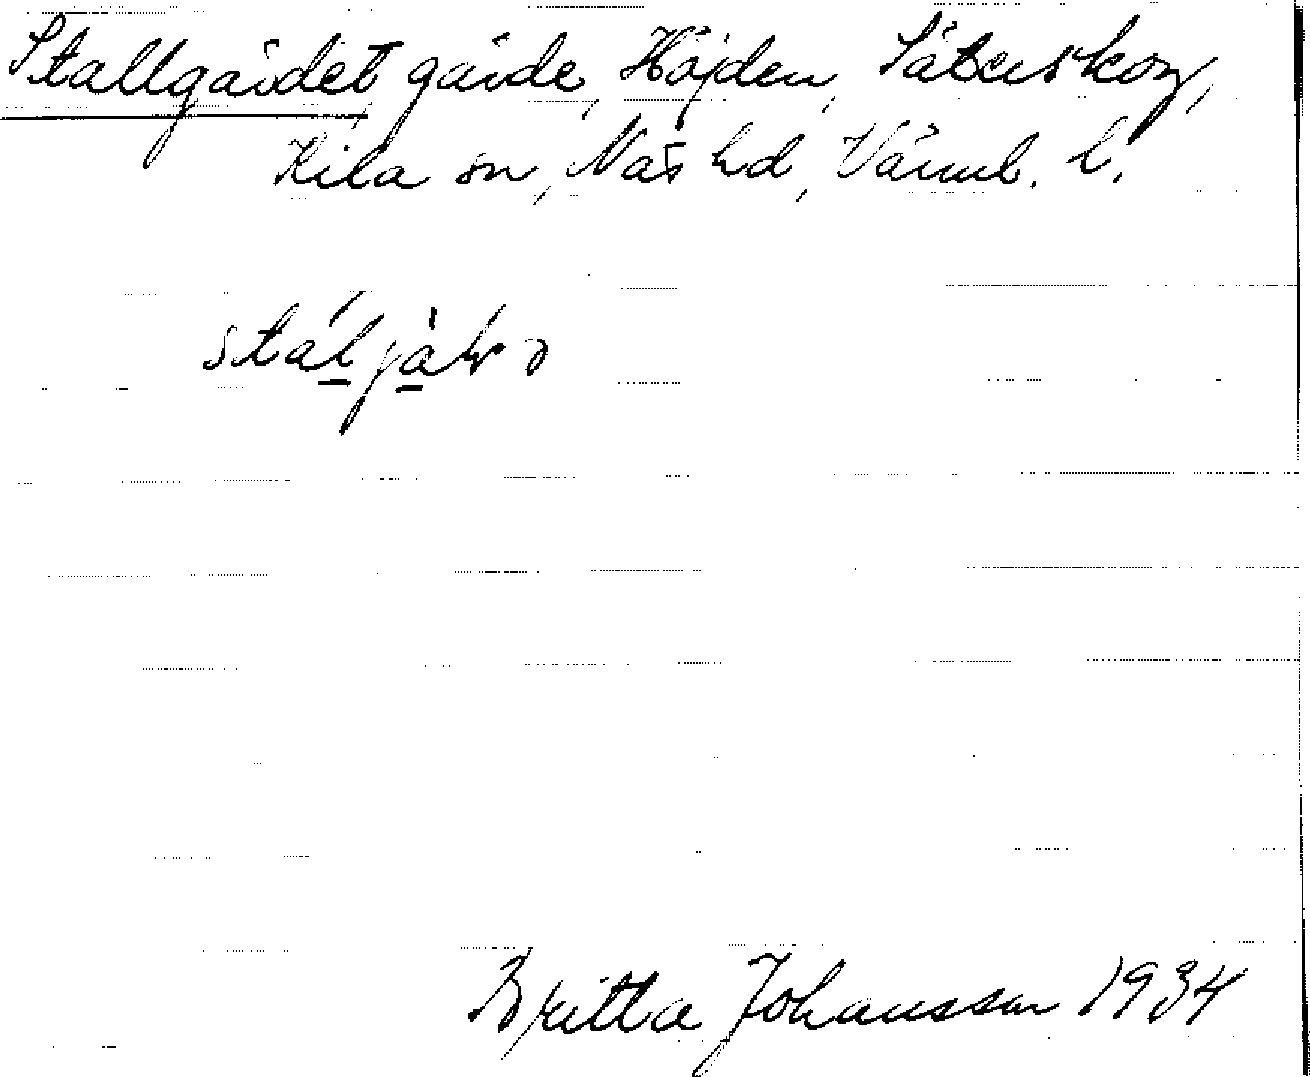 Stallgärdet gärde, Höjden, Säterskog,
Kila sn, Näs hd, Värml. l.
Britta Johansson 1934